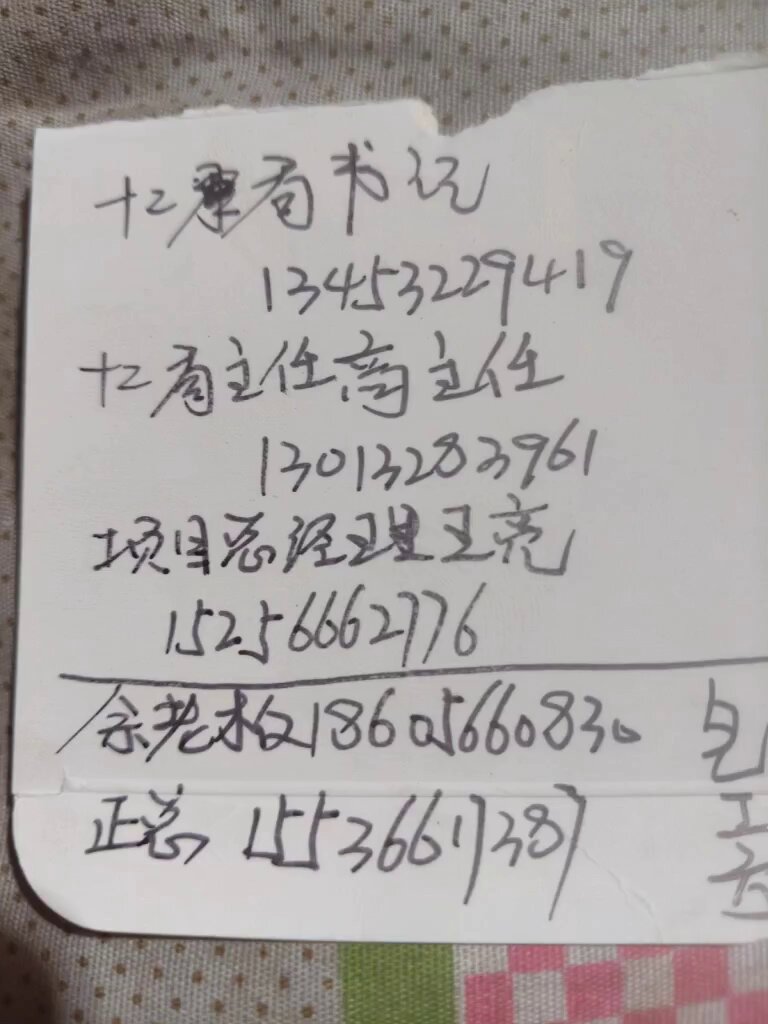 十二局书记
13453229419
十二局主任高主任
13013283961
项目总经理王亮
15256662776
余老板18605660830
正总 15536617387
工